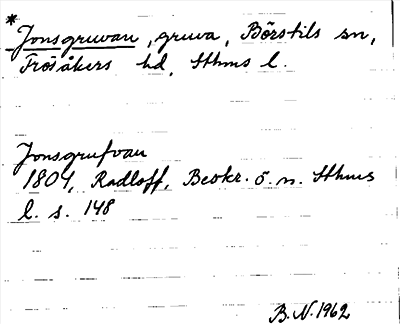 * Jonsgruvan, gruva, Börstils sn,
Frösåkers hd, Sthms l.
Jonsgrufvan
1804, Radloff, Beskr. ö. n. Sthms
l. s. 148
B.N. 1962